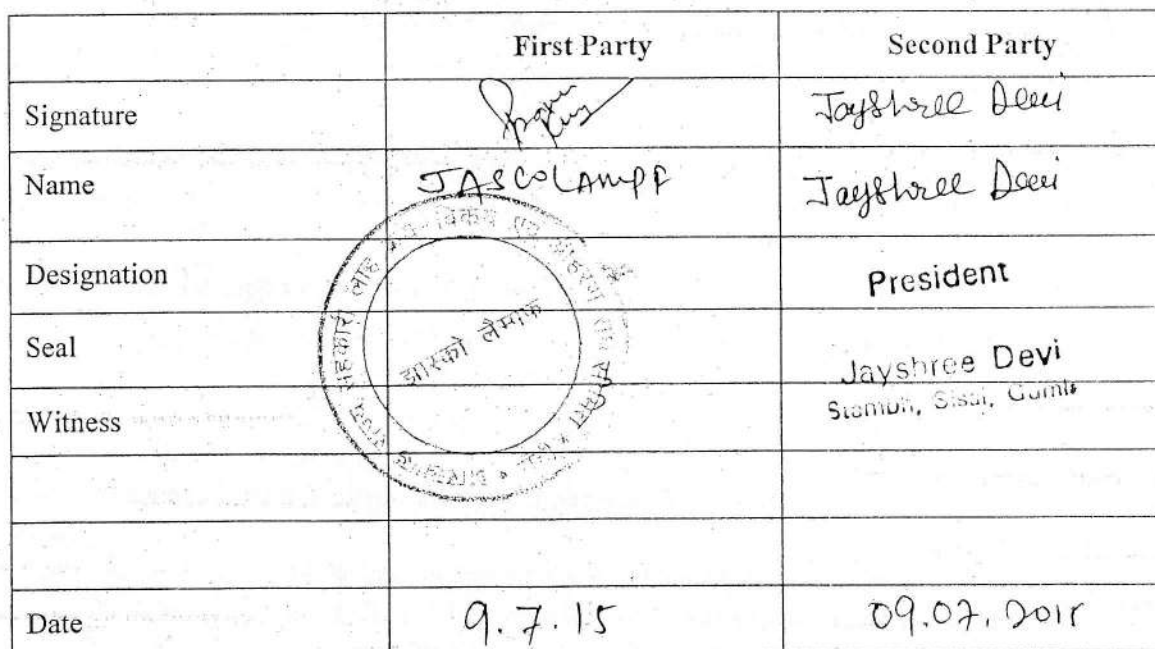 First Party Second Party
Signature Jayshree Devi
Name JASCOLAMPF Jayshree Devi
Designation President
झास्को लैम्पफ
Seal Jayshree Devi
Witness Sisai, Gumla
Date 9.7.15 09.07.2015